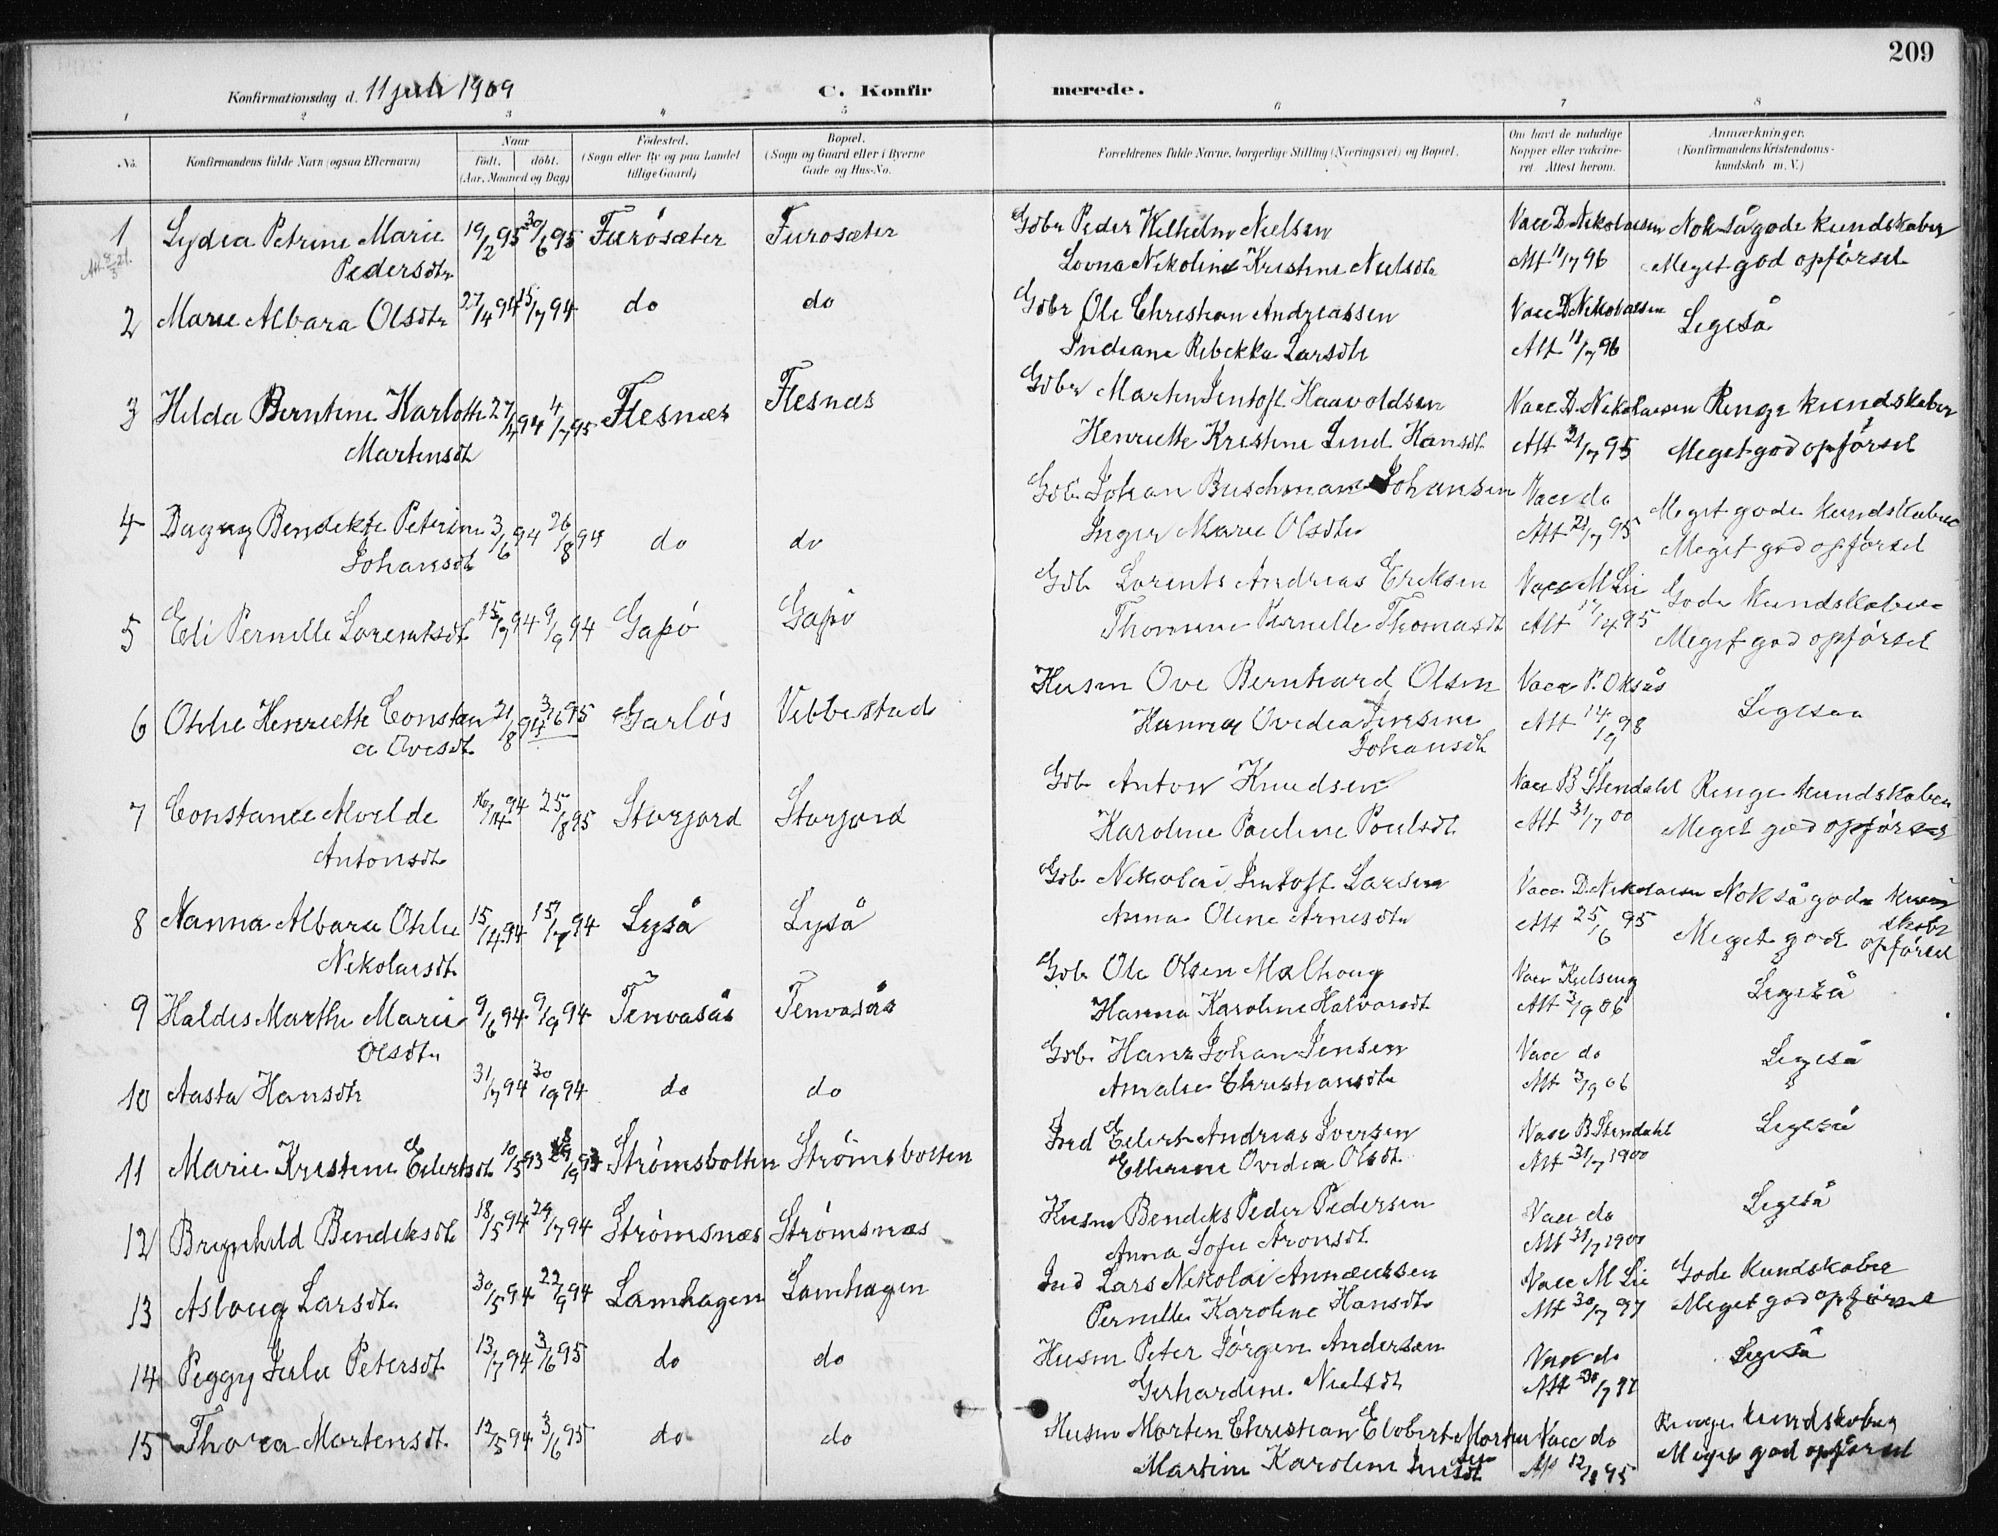 209
Konfirmationsdag d. 11 juli 1909
C. Konfirmerede.
1 2 3 4 5 6 7 8
No.
Konfirmandens fulde Navn (ogsaa Efternavn)
Naar
født. døbt.
(Aar, Maaned og Dag)
Fødested.
(Sogn eller By og paa Landet
tillige Gaard)
Bopæl.
(Sogn og Gaard eller i Byerne
Gade og Hus-No.
Forældrenes fulde Navne, borgerlige Stilling (Næringsvei) og Bopæl.
Om havt de naturlige
Kopper eller vakcine-
ret Attest herom.
Anmærkninger.
(Konfirmandens Kristendoms-
kundskab m. V.)
1 Lydia Petrine Marie 19/2 95 30/6 95 Furösæter Furosæter Gdbr Peder Wilhelm Nielsen Vacc D. Nikolaisen Nok så gode kundskaber
Pedersdtr Lovna Nikoline Kristine Nielsdtr Att 11/7 96 Meget god opførsel
2 Marie Albara Olsdtr 27/4 94 15/7 94 do do Gdbr Ole Christian Andreassen Vacc D Nikolaisen Ligeså
Indiana Rebekka Larsdtr Att 11/7 96
3 Hilda Berntine Karlotte 27/12 94 4/7 95 Flesnæs Flesnæs Gdbr Martin Jentoft Haavoldsen Vacc D. Nikolaisen Ringe kundskaber
Martinsdtr Henriette Kristine Lind Hansdtr Att 21/7 95 Meget god opførsel
4 Dagny Bendikte Petrine 3/6 94 26/8 94 do do Gdb. Johan Buschman Johansen Vacc do Meget gode kundskaber
Johansdtr Inger Marie Olsdtr Att 21/7 95 Meget god opførsel
5 Eli Pernille Lorentsdtr 15/7 94 9/9 94 Gapö Gapö Gdb Lorents Andreas Eriksen Vacc M Lie Gode kundskaber
Thomine Pernille Thomasdtr Att 17/4 95 Meget god opførsel
6 Othlie Henriette Constan 21/8 94 3/6 95 Garløs Vebbestad Husm Ove Bernhard Olsen Vacc P. Oksås Ligesaa
a Ovesdtr Hanna Ovedia Jensine Att 14/9 98
Johansdtr
7 Constance Alvilde 16/12 94 25/8 95 Storjord Storjord Gdb Anton Knudsen Vacc B Stendahl Ringe kundskaber
Antonsdtr Karoline Pauline Poulsdtr Att 31/7 00 Meget god opførsel
8 Nanna Albara Othlie 15/4 94 15/7 94 Lyså Lyså Gdb Nikolai Jentoft Larsen Vacc D. Nikolaisen Nok så gode kund
Nikolaisdtr Anna Oline Arnesdtr Att 25/6 95 skab
Meget god opførsel
9 Haldis Marthe Marie 9/6 94 9/9 94 Tenvasås Tenvasås Gdb Ole Olsen Melhoug Vacc Kulseng Ligeså
Olsdtr Hanna Karoline Halvorsdtr Att 3/9 06
10 Aasta Hansdtr 31/7 94 30/9 94 do do Gdb. Hans Johan Jensen Vacc do Ligeså
Amalie Christiansdtr Att 3/9 06
11 Marie Kristine Eilertsdtr 10/5 93 Strømsbotten Strømsbotten Ind Eilert Andreas Iversen Vacc B Stendahl Ligeså
Ellerine Ovedia Olsdtr Att 31/7 1900
12 Brynhild Bendiksdtr 18/5 94 29/7 94 Strømsnæs Strømsnæs Husm Bendiks Peder Pedersen Vacc do Ligeså
Anna Sofie Aronsdtr Att 31/7 1900
13 Aslaug Larsdtr 30/5 94 22/9 94 Lamhagen Lamhagen Ind Lars Nikolai Annæussen Vacc M Lie Gode kundskaber
Pernille Karoline Hansdtr Att 30/7 97 Meget god opførsel
14 Peggy Julie Petersdtr 13/7 94 3/6 95 do do Husm Peter Jörgen Andersen Vacc do Ligeså
Gerhardine Nielsdtr Att 30/7 97
15 Thora Mortensdtr 12/5 94 3/6 95 do do Husm Morten Christian Elobert Morten Vacc do Ringe kundskaber
Martine Karoline Att 12/8 95 Meget god opførsel